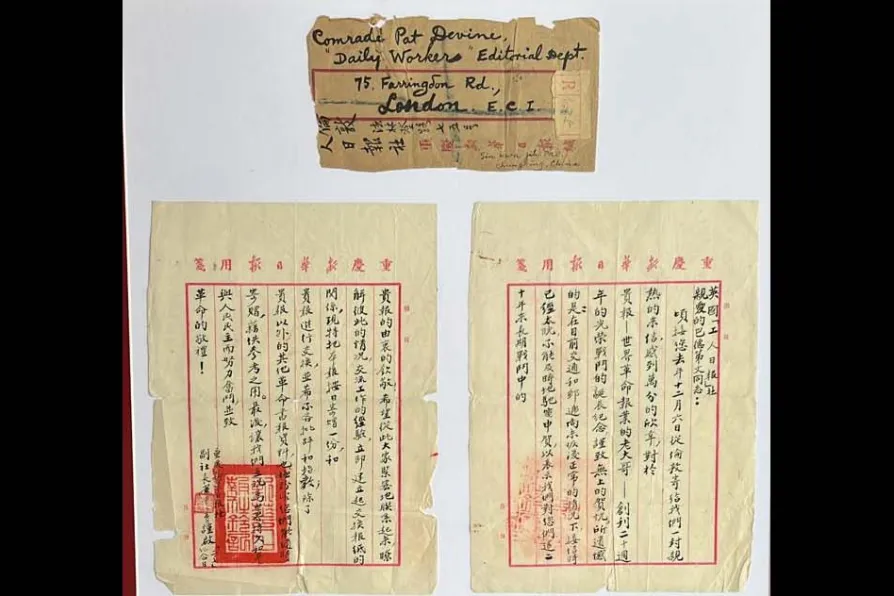 Comrade Pat Devine,
"Daily Worker" Editorial Dept.
75. Farringdon Rd.,
London. E.C.1.
倫敦 法林登路七五号
人日報社
重慶新華日報緘
Sin Hwa Jih Pao
Chungking, China
重慶新華日報用箋
英國「工人日報」社
親愛的巴德第文同志：
頃接您去年十二月六日從倫敦寄給我們一封親
熱的來信，感到萬分的欣幸，對於
貴報——世界革命報業的老大哥——創刊二十週
年的光榮戰鬥的誕辰紀念謹致無上的賀忱，所遺憾
的是：在目前交通和郵遞尚未恢復正常的情況下接信時
已經不能及時地馳電申賀以表示我們對您們這二
十年來長期戰鬥中的
重慶新華日報用箋
貴報的由衷的欽敬，希望從此大家緊密地聯系起來瞭
解彼此的情況，交流工作的經驗，立即建立起交換報紙的
關係，現特把本報按日寄贈一份，和
貴報進行交換，並希不吝批評和指教，除了
貴報以外的其他革命書報資料也
寄贈，藉供參考之用。最後讓我們
與人民民主而努力奮鬥並致
革命的敬禮！
副社長